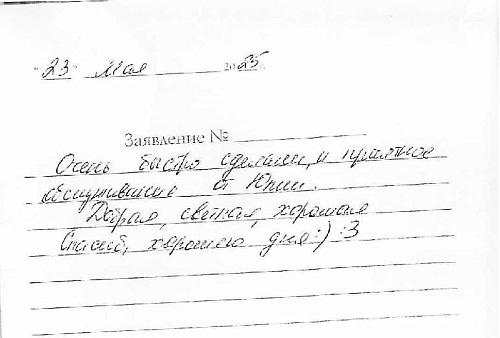 "23" Мая 2025
Заявление №
Очень быстро сделали, и приятное
обслуживание от Юлии.
Добрая, светлая, хорошая
Спасиб, хорошего дня :) :3